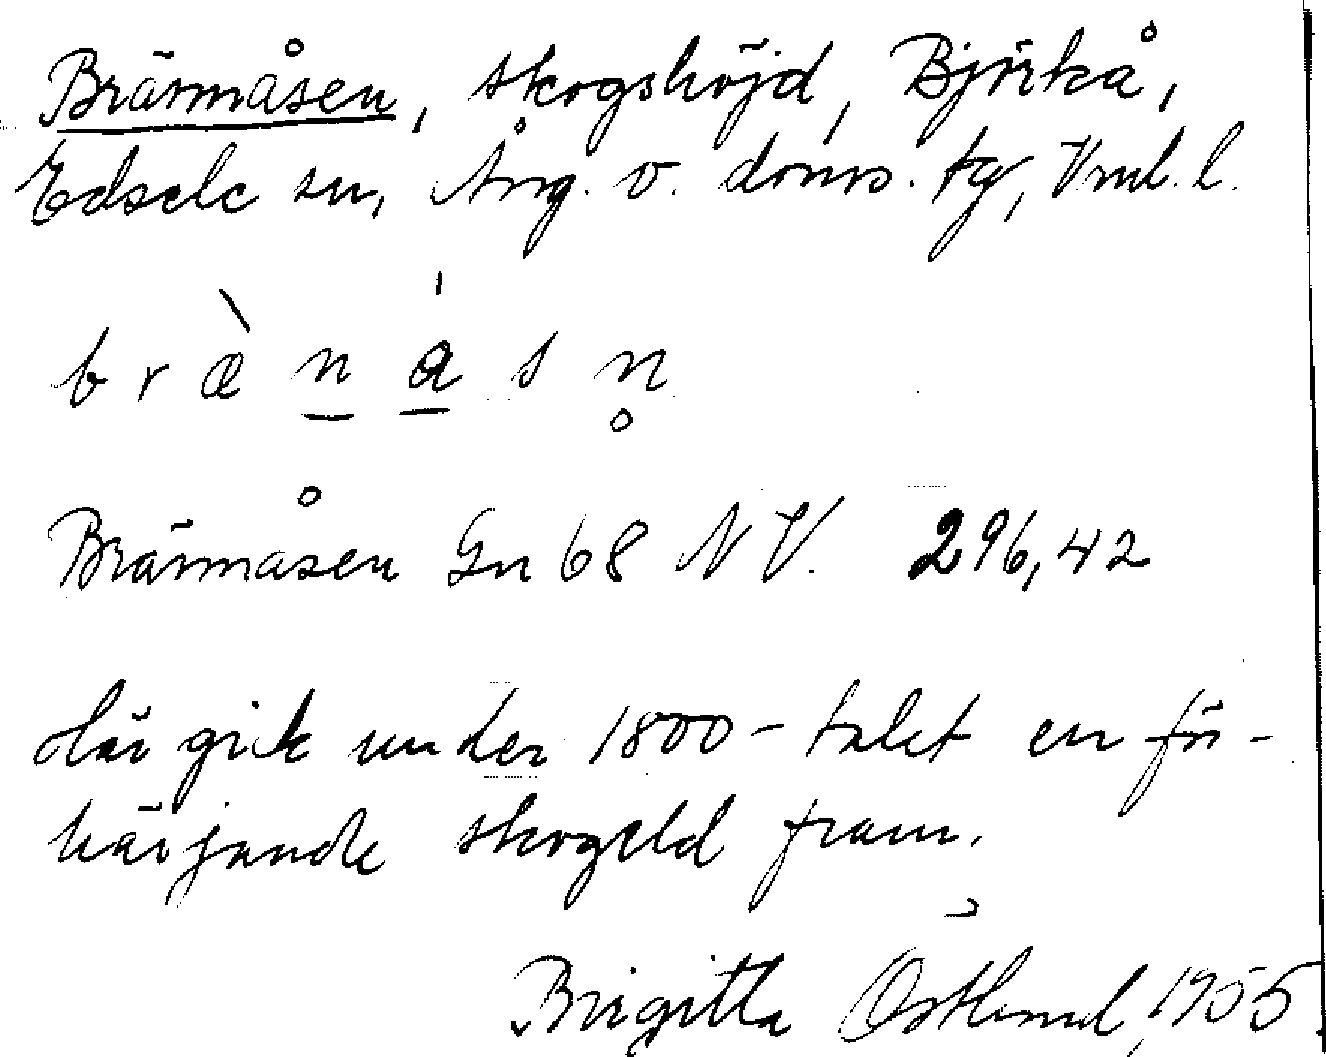 Brännåsen, skogshöjd, Björkå,
Edsele sn, Ång. v. doms. tg, Vnl. l.
b r æ̀ n á s n̥
Brännåsen Gn 68 NV. 296,42
Här gick under 1800-talet en för-
härjande skogeld fram.
Birgitta Östlund, 1955